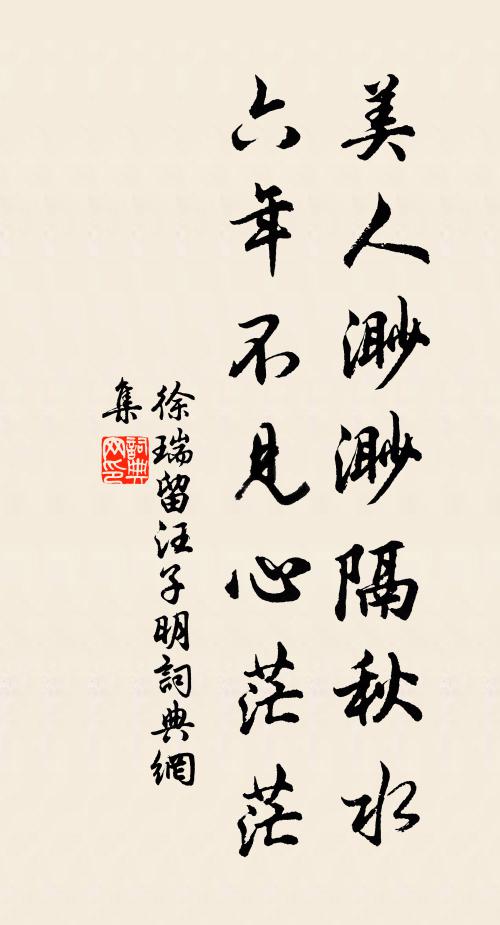 美人渺渺隔秋水
六年不见心茫茫
徐瑞留汪子明詞典網
集
詞典
网印